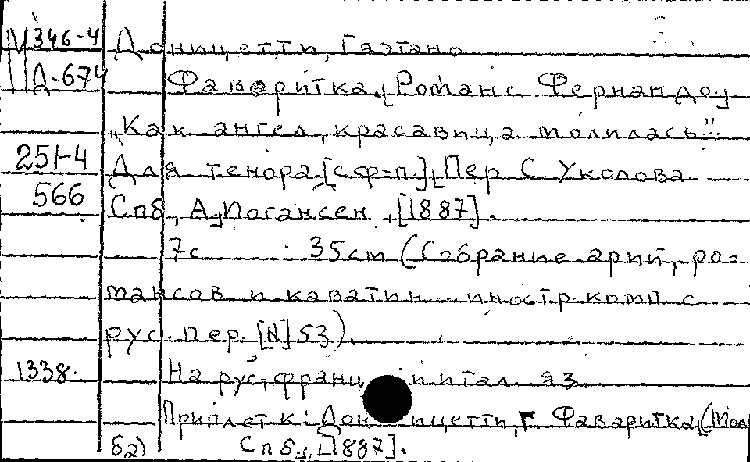 М 346-4 Доницетти, Гаэтано
Д-674 Фаваритка. Романс Фернандо
„Как ангел, красавица молилась".
251-4 Для тенора [с ф-п]. Пер С Уколова
566 Спб, А. Иогансен, [1887].
7с 35см (Собрание арий, ро=
мансов и каватин иностр. комп с
рус. пер. [N] 53).
1338. На рус, франц и итал яз
Приплет к: Доницетти, Г Фаваритка (Мол
б2) Спб., [1887].